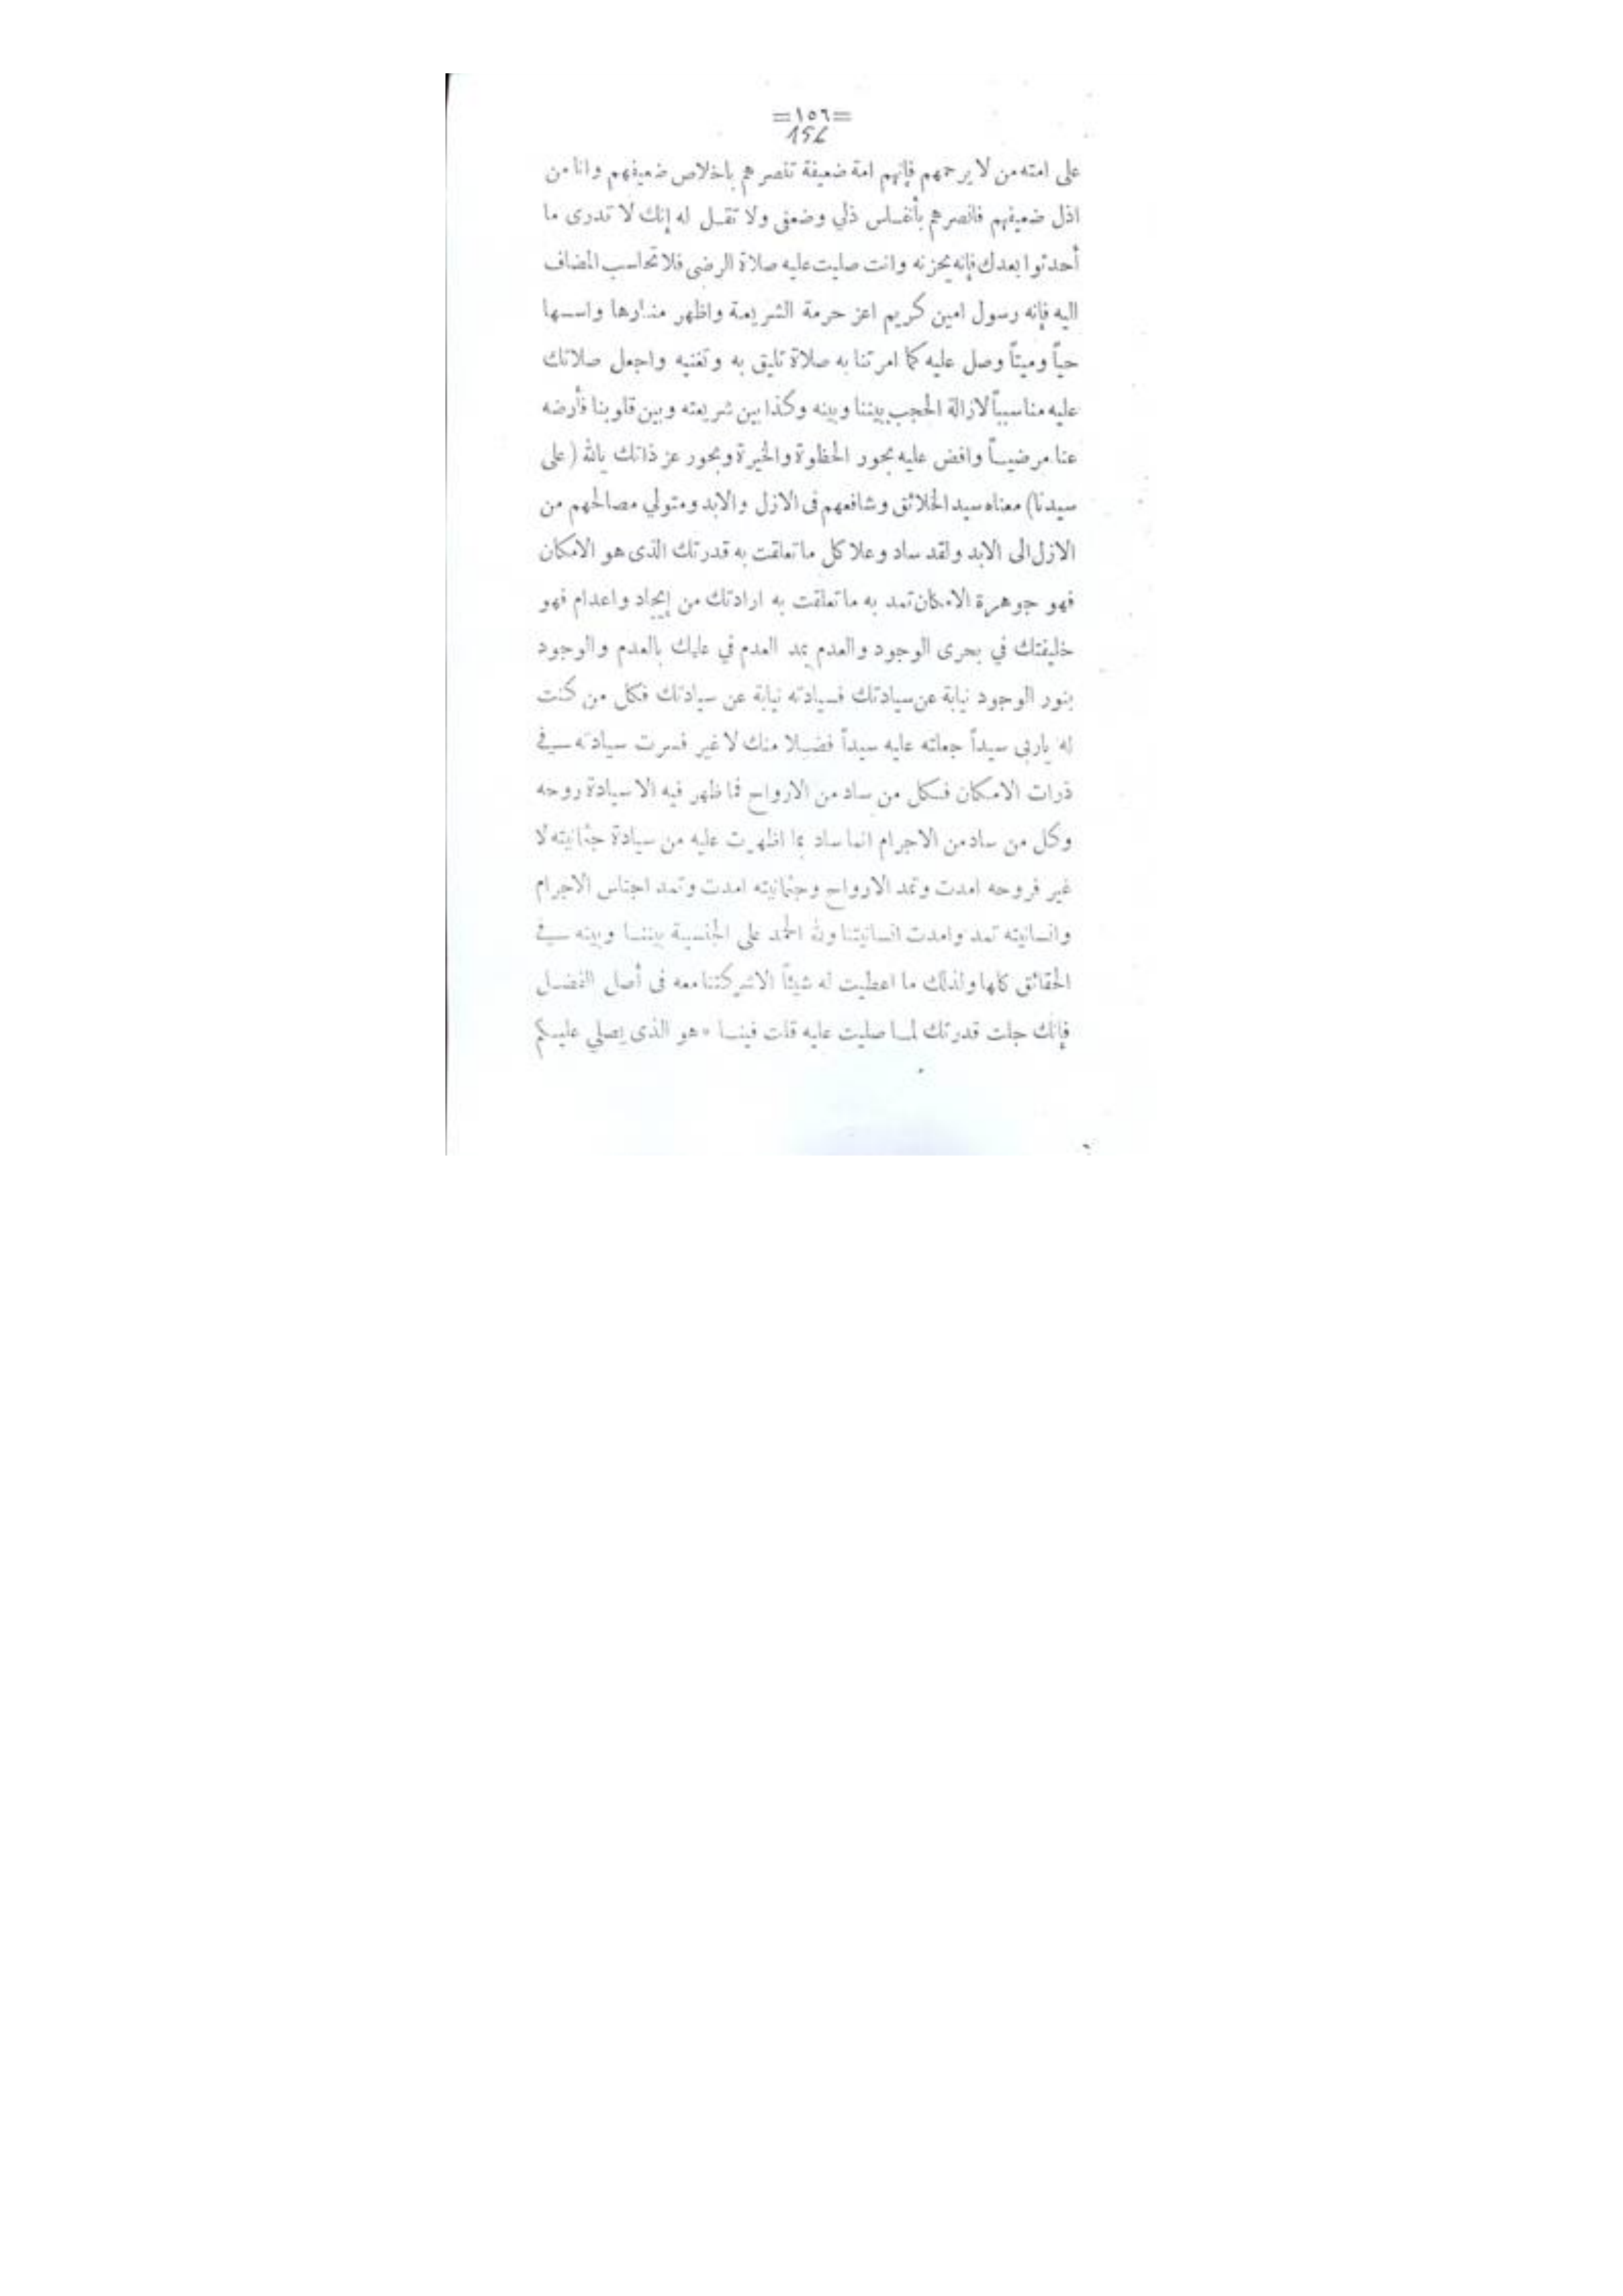 =١٥٦=
156
على امته من لا يرحمهم فإنهم امة ضعيفة تنصرهم باخلاص ضعيفهم وانا من
اذل ضعيفهم فانصرهم بأنفاس ذلي وضعفى ولا تقل له إنك لا تدرى ما
أحدثوا بعدك فإنه يحزنه وانت صليت عليه صلاة الرضى فلا تحاسب المضاف
اليه فإنه رسول امين كريم اعز حرمة الشريعة واظهر منارها واسسها
حياً وميتاً وصل عليه كما امرتنا به صلاة تليق به وتغنيه واجعل صلاتك
عليه مناسبياً لازالة الحجب بيننا وبينه وكذا بين شريعته وبين قلوبنا فأرضه
عنا مرضياً وافض عليه بحور الحظوة والخيرة وبحور عز ذاتك يالله (على
سيدنا) معناه سيد الخلائق وشافعهم فى الازل والابد ومتولي مصالحهم من
الازل الى الابد ولقد ساد وعلا كل ما تعلقت به قدرتك الذى هو الامكان
فهو جوهرة الامكان تمد به ما تعلقت به ارادتك من إيجاد واعدام فهو
خليفتك في بحرى الوجود والعدم يمد العدم في علمك بالعدم والوجود
بنور الوجود نيابة عن سيادتك فسيادته نيابة عن سيادتك فكل من كنت
له ياربى سيداً جعلته عليه سيداً فضلا منك لا غير فسرت سيادته في
ذرات الامكان فكل من ساد من الارواح فما ظهر فيه الا سيادة روحه
وكل من ساد من الاجرام انما ساد بما اظهرت عليه من سيادة جثمانيته لا
غير فروحه امدت وتمد الارواح وجثمانيته امدت وتمد اجناس الاجرام
وانسانيته تمد وامدت انسانيتنا ولله الحمد على الجنسية بيننا وبينه في
الحقائق كلها ولذلك ما اعطيت له شيئاً الا شركتنا معه فى أصل الفضل
فإنك جلت قدرتك لما صليت عليه قلت فينا «هو الذى يصلي عليكم